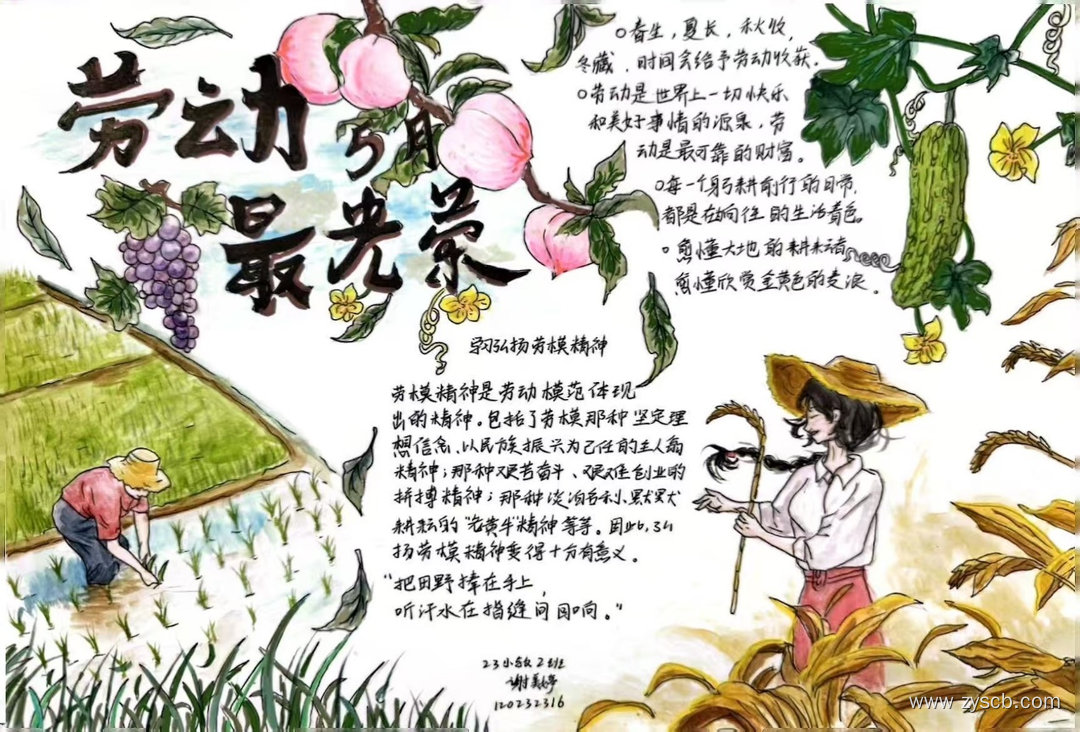 劳动
最光荣
春生，夏长，秋收，
冬藏，时间会给予劳动收获。
劳动是世界上一切快乐
和美好事情的源泉，劳
动是最可靠的财富。
每一个躬耕前行的日常，
都是在向往的生活着色。
愈懂大地的耕耘者
愈懂欣赏金黄色的麦浪。
弘扬劳模精神
劳模精神是劳动模范体现
出的精神。包括了劳模那种坚定理
想信念、以民族振兴为己任的主人翁
精神；那种艰苦奋斗、艰难创业的
拼搏精神；那种淡泊名利、默默
耕耘的"老黄牛"精神等等。因此，弘
扬劳模精神变得十分有意义。
"把田野捧在手上，
听汗水在指缝间回响。"
23小教2班
谢美婷
120232316
www.zyscb.com